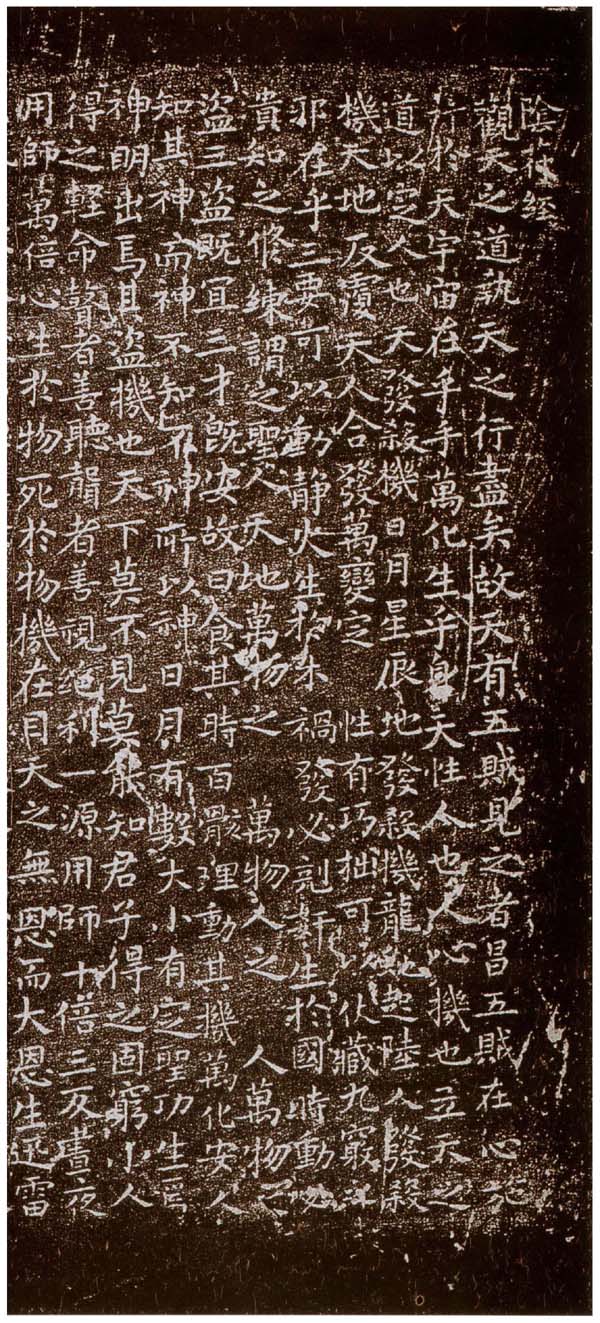 陰符經
觀天之道執天之行盡矣故天有五賊見之者昌五賊在心施
行於天宇宙在乎手萬化生乎身天性人也人心機也立天之
道以定人也天發殺機日月星辰地發殺機龍虵起陸人發殺
機天地反覆天人合發萬變定性有巧拙可以伏藏九竅之
邪在乎三要可以動靜火生於木禍發必剋姧生於國時動必
貴知之修練謂之聖人天地萬物之萬物人之人萬物之
盜三盜既冝三才既安故曰食其時百骸理動其機萬化安人
知其神而神不知不神所以神日月有數大小有定聖功生焉
神明出焉其盜機也天下莫不見莫能知君子得之固窮小人
得之輕命瞽者善聽聾者善視絕利一源用師十倍三反晝夜
用師萬倍心生於物死於物機在目天之無恩而大恩生迅雷